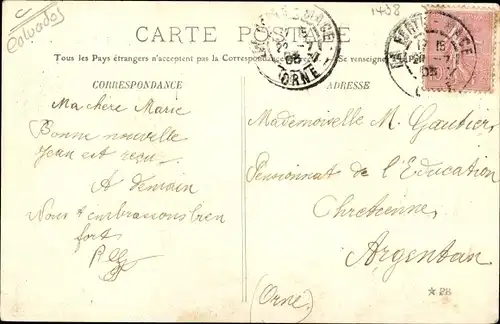 Calvados
1438
CARTE POSTALE
Tous les Pays étrangers n'acceptent pas la Correspondance
Se renseigner
CORRESPONDANCE
ADRESSE
Ma chère Marie
Bonne nouvelle
Jean est reçu
A demain
Nous t'embrassons bien
fort
Mademoiselle M. Gautier
Pensionnat de l'Education
Chretienne
Argentan
(Orne)
ORNE
★ PB